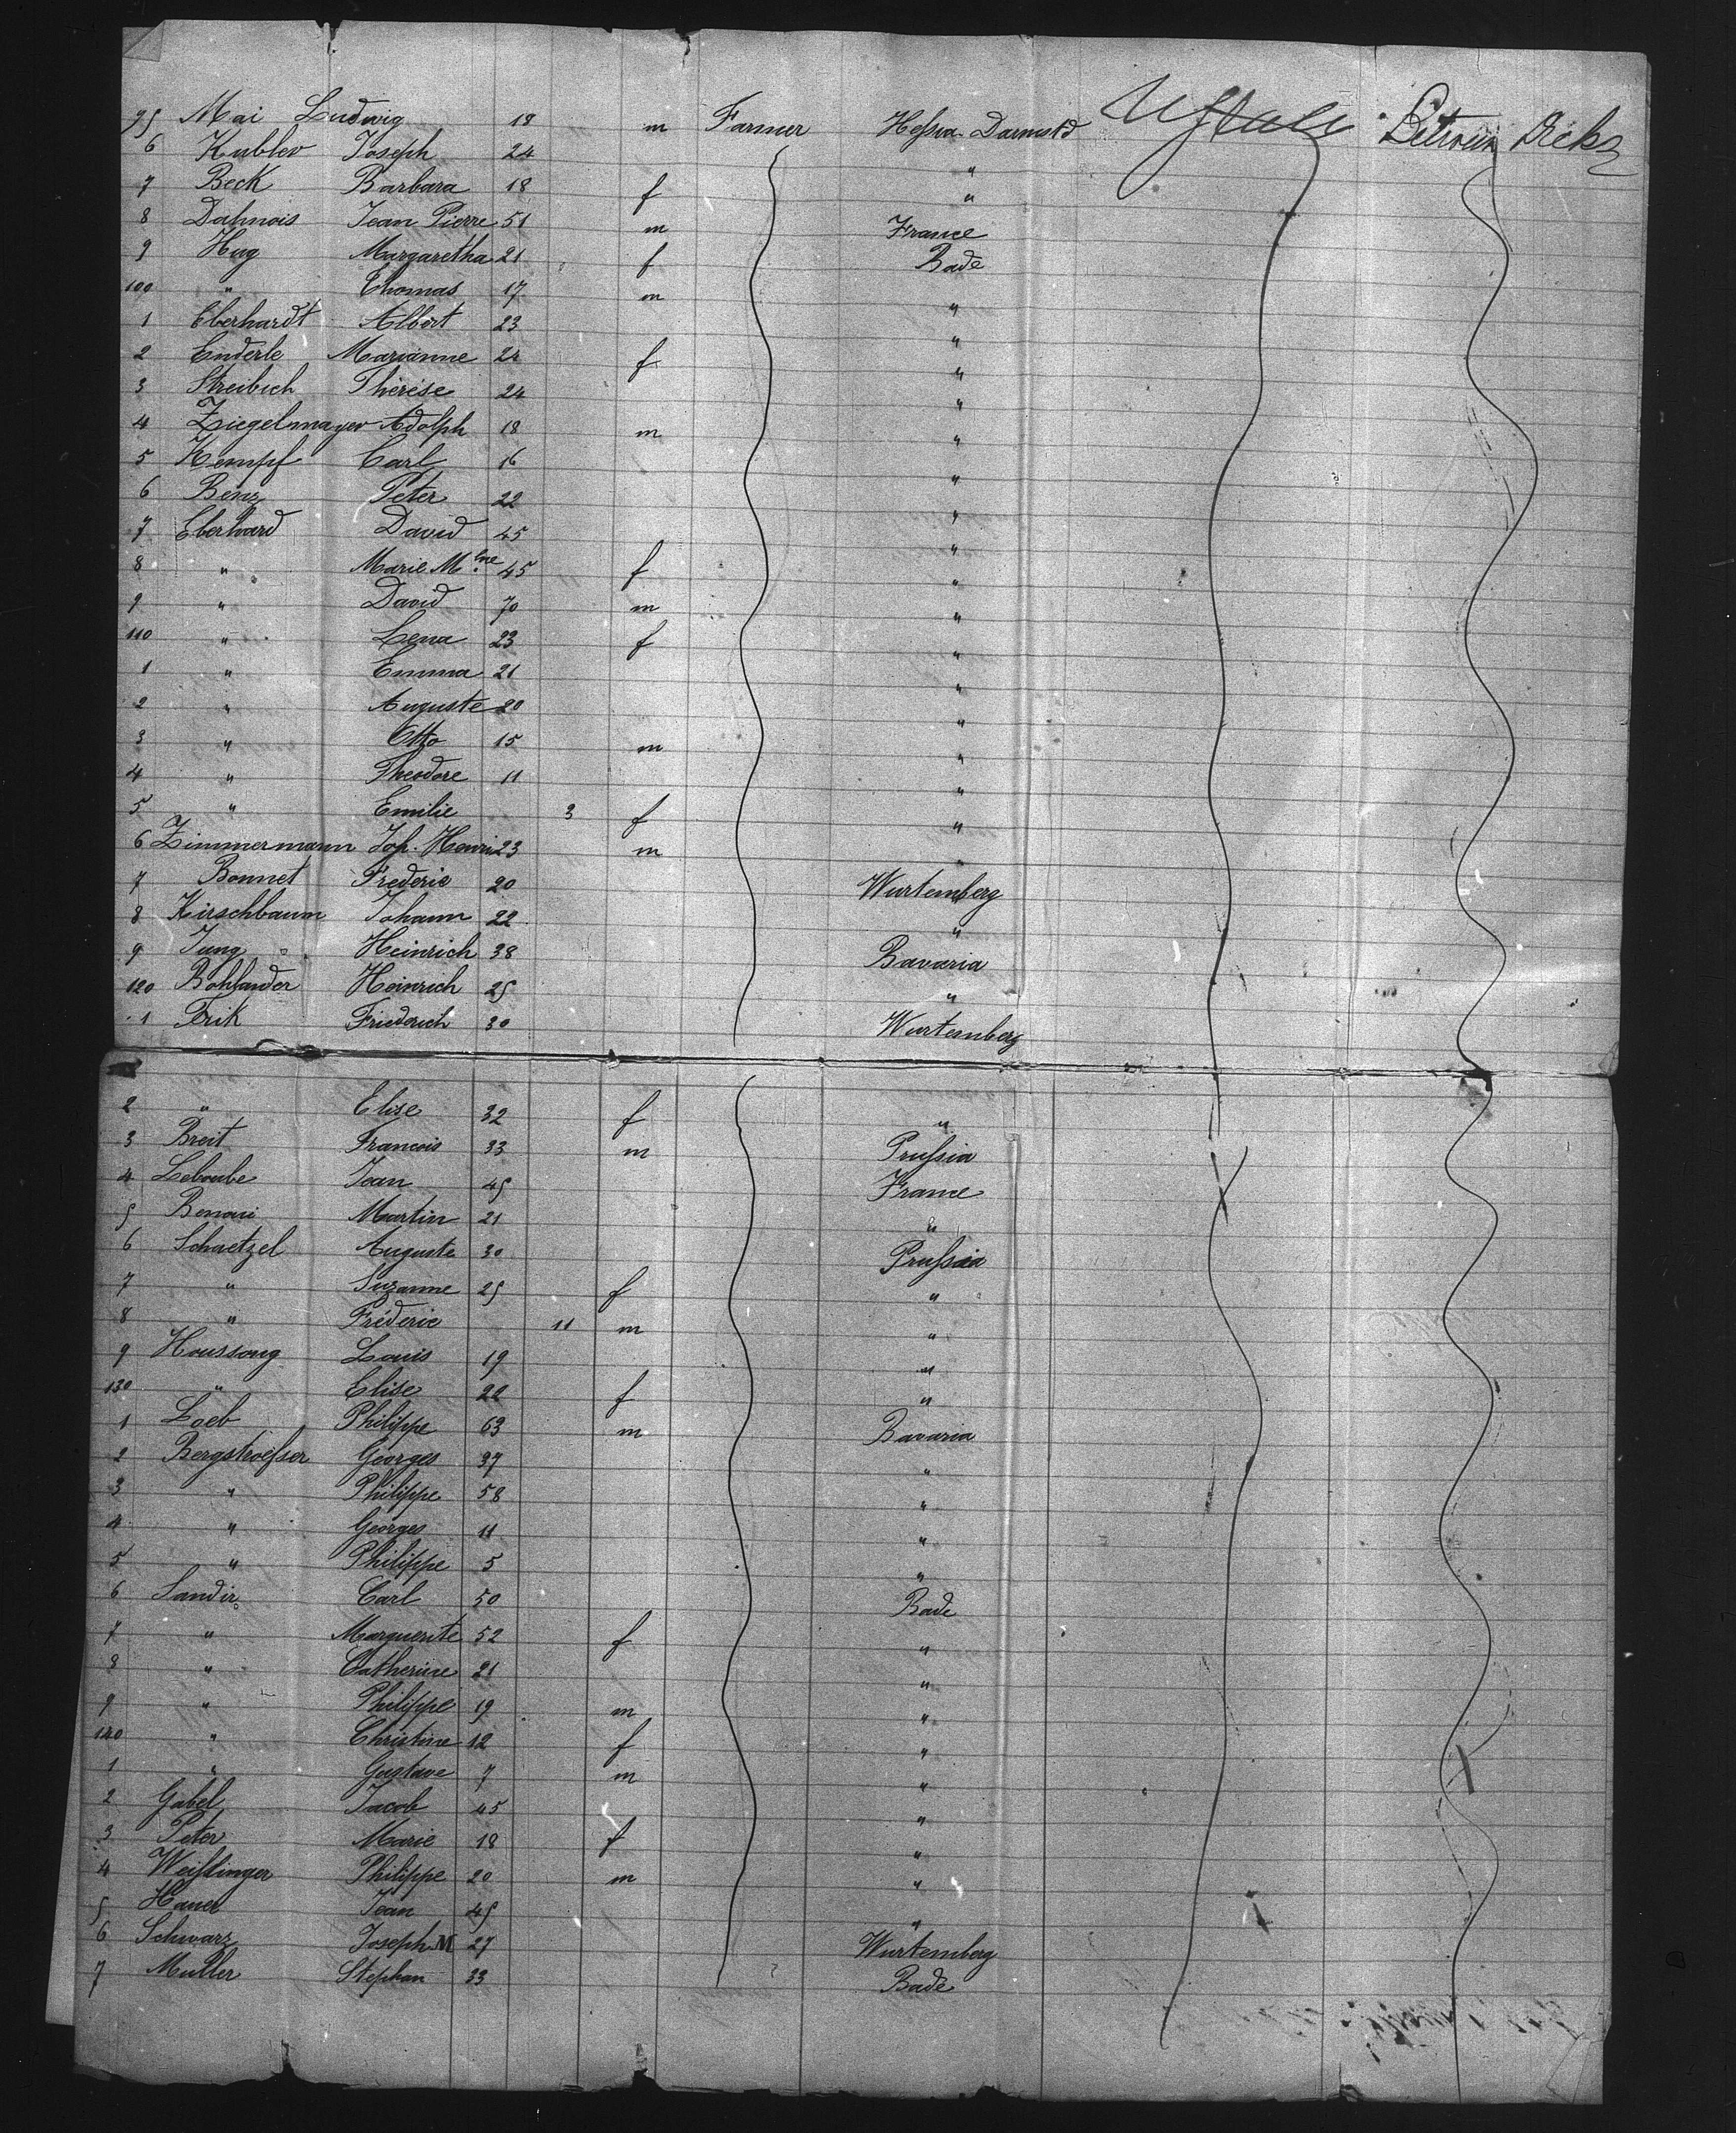 95 Mai Ludwig 18 m Farmer Hessia Darmstd U States Between Decks
6 Kubler Joseph 24 "
7 Beck Barbara 18 f "
8 Dalmois Jean Pierre 51 m France
9 Hug Margaretha 21 f Bade
100 " Thomas 17 m "
1 Eberhardt Albert 23 "
2 Enderle Marianne 24 f "
3 Streibich Thérèse 24 "
4 Ziegelmayer Adolph 18 m "
5 Kempf Carl 16 "
6 Benz Peter 22 "
7 Eberhard David 45 "
8 " Marie Mlne 45 f "
9 " David 70 m "
110 " Lena 23 f "
1 " Emma 21 "
2 " Auguste 20 "
3 " Otto 15 m "
4 " Theodore 11 "
5 " Emilie 3 f "
6 Zimmermann Jos. Henri 23 m "
7 Bonnet Frederic 20 Wurtemberg
8 Kirschbaum Johann 22 "
9 Jung Heinrich 38 Bavaria
120 Bohlander Heinrich 25 "
1 Frik Friederich 30 Wurtemberg
2 " Elise 32 f "
3 Breit Francois 33 m Prussia
4 Leboube Jean 45 France
5 Martin 21 "
6 Schaetzel Auguste 30 Prussia
7 " Suzanne 25 f "
8 " Fréderic 11 m "
9 Houssong Louis 19 "
130 " Elise 22 f "
1 Loeb Philippe 63 m Bavaria
2 Bergstroesser Georges 37 "
3 " Philippe 58 "
4 " Georges 11 "
5 " Philippe 5 "
6 Sandir Carl 50 Bade
7 " Marguerite 52 f "
8 " Catherine 21 "
9 " Philippe 19 m "
140 " Christine 12 f "
1 " Gustave 7 m "
2 Gabel Jacob 45 "
3 Peter Marie 18 f "
4 Weisslinger Philippe 20 m "
5 Hauer Jean 45 "
6 Schwarz Joseph M 27 Wurtemberg
7 Muller Stephan 33 Bade